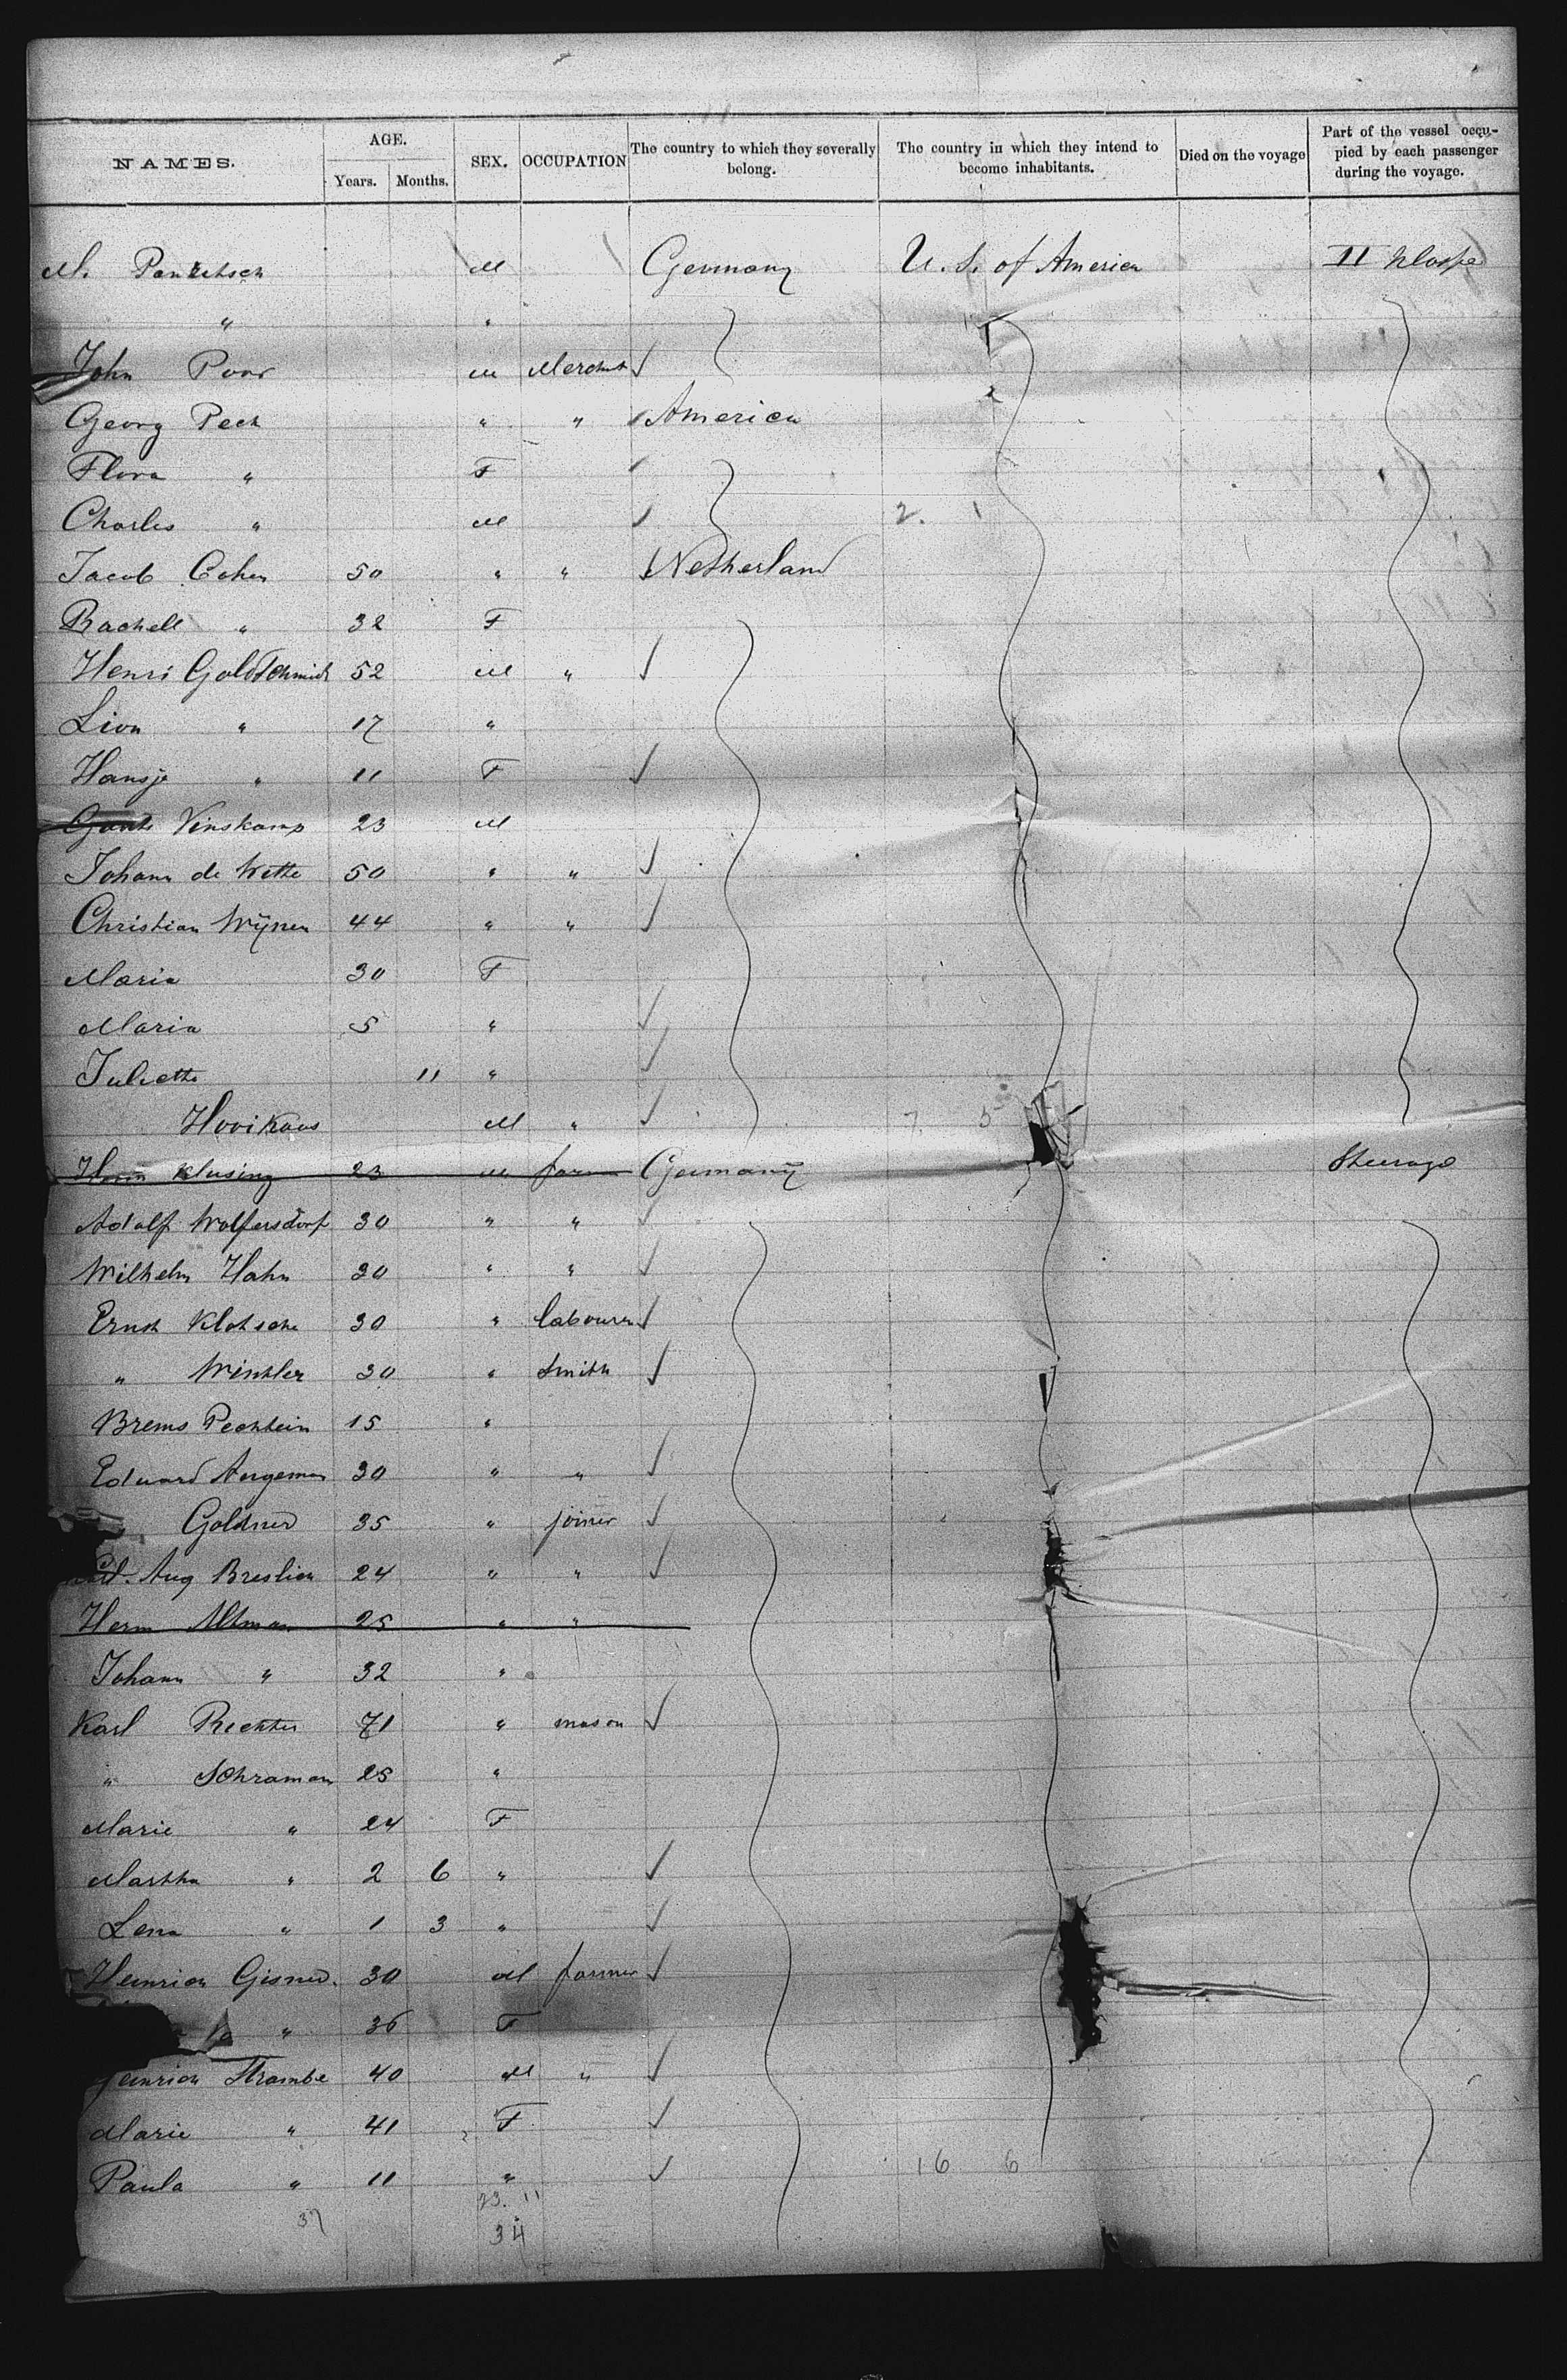 NAMES. AGE. Years. Months. SEX. OCCUPATION The country to which they severally belong. The country in which they intend to become inhabitants. Died on the voyage Part of the vessel occupied by each passenger during the voyage.
M. M Germany U. S. of America II Klasse
" "
John Poor M Merchnt
Georg Pech " " America
Flora " F
Charles " M 2. 1
Jacob Cohen 50 " " Netherland
Rachell " 32 F
Henri Goldschmidt 52 M "
Lion " 17 "
Hansje " 11 F
Vinskamp 23 M
Johann de Witte 50 " "
Christian Wijnen 44 " "
Maria 30 F
Maria 5 "
Juliette 11 "
Hooikaas M " 7. 5
Herm Klusing 23 M farm Germany Steerage
Adolf Wolfersdorf 30 " "
Wilhelm Hahn 30 " "
Ernst Klotsche 30 " labourer
" Winkler 30 " Smith
Brems Pechtein 15 "
Eduard 30 " "
Goldner 35 " joiner
Aug Breslien 24 " "
Herm Altman 25 " "
Johann " 32 "
Karl Richter 71 " mason
" Schraman 25 "
Marie " 24 F
Martha " 2 6 "
Lena " 1 3 "
Heinrich Gisner. 30 M farmer
" 36 F
Heinrich Strambe 40 M "
Marie " 41 F
Paula " 11 " 16 6
37 23. 11
34